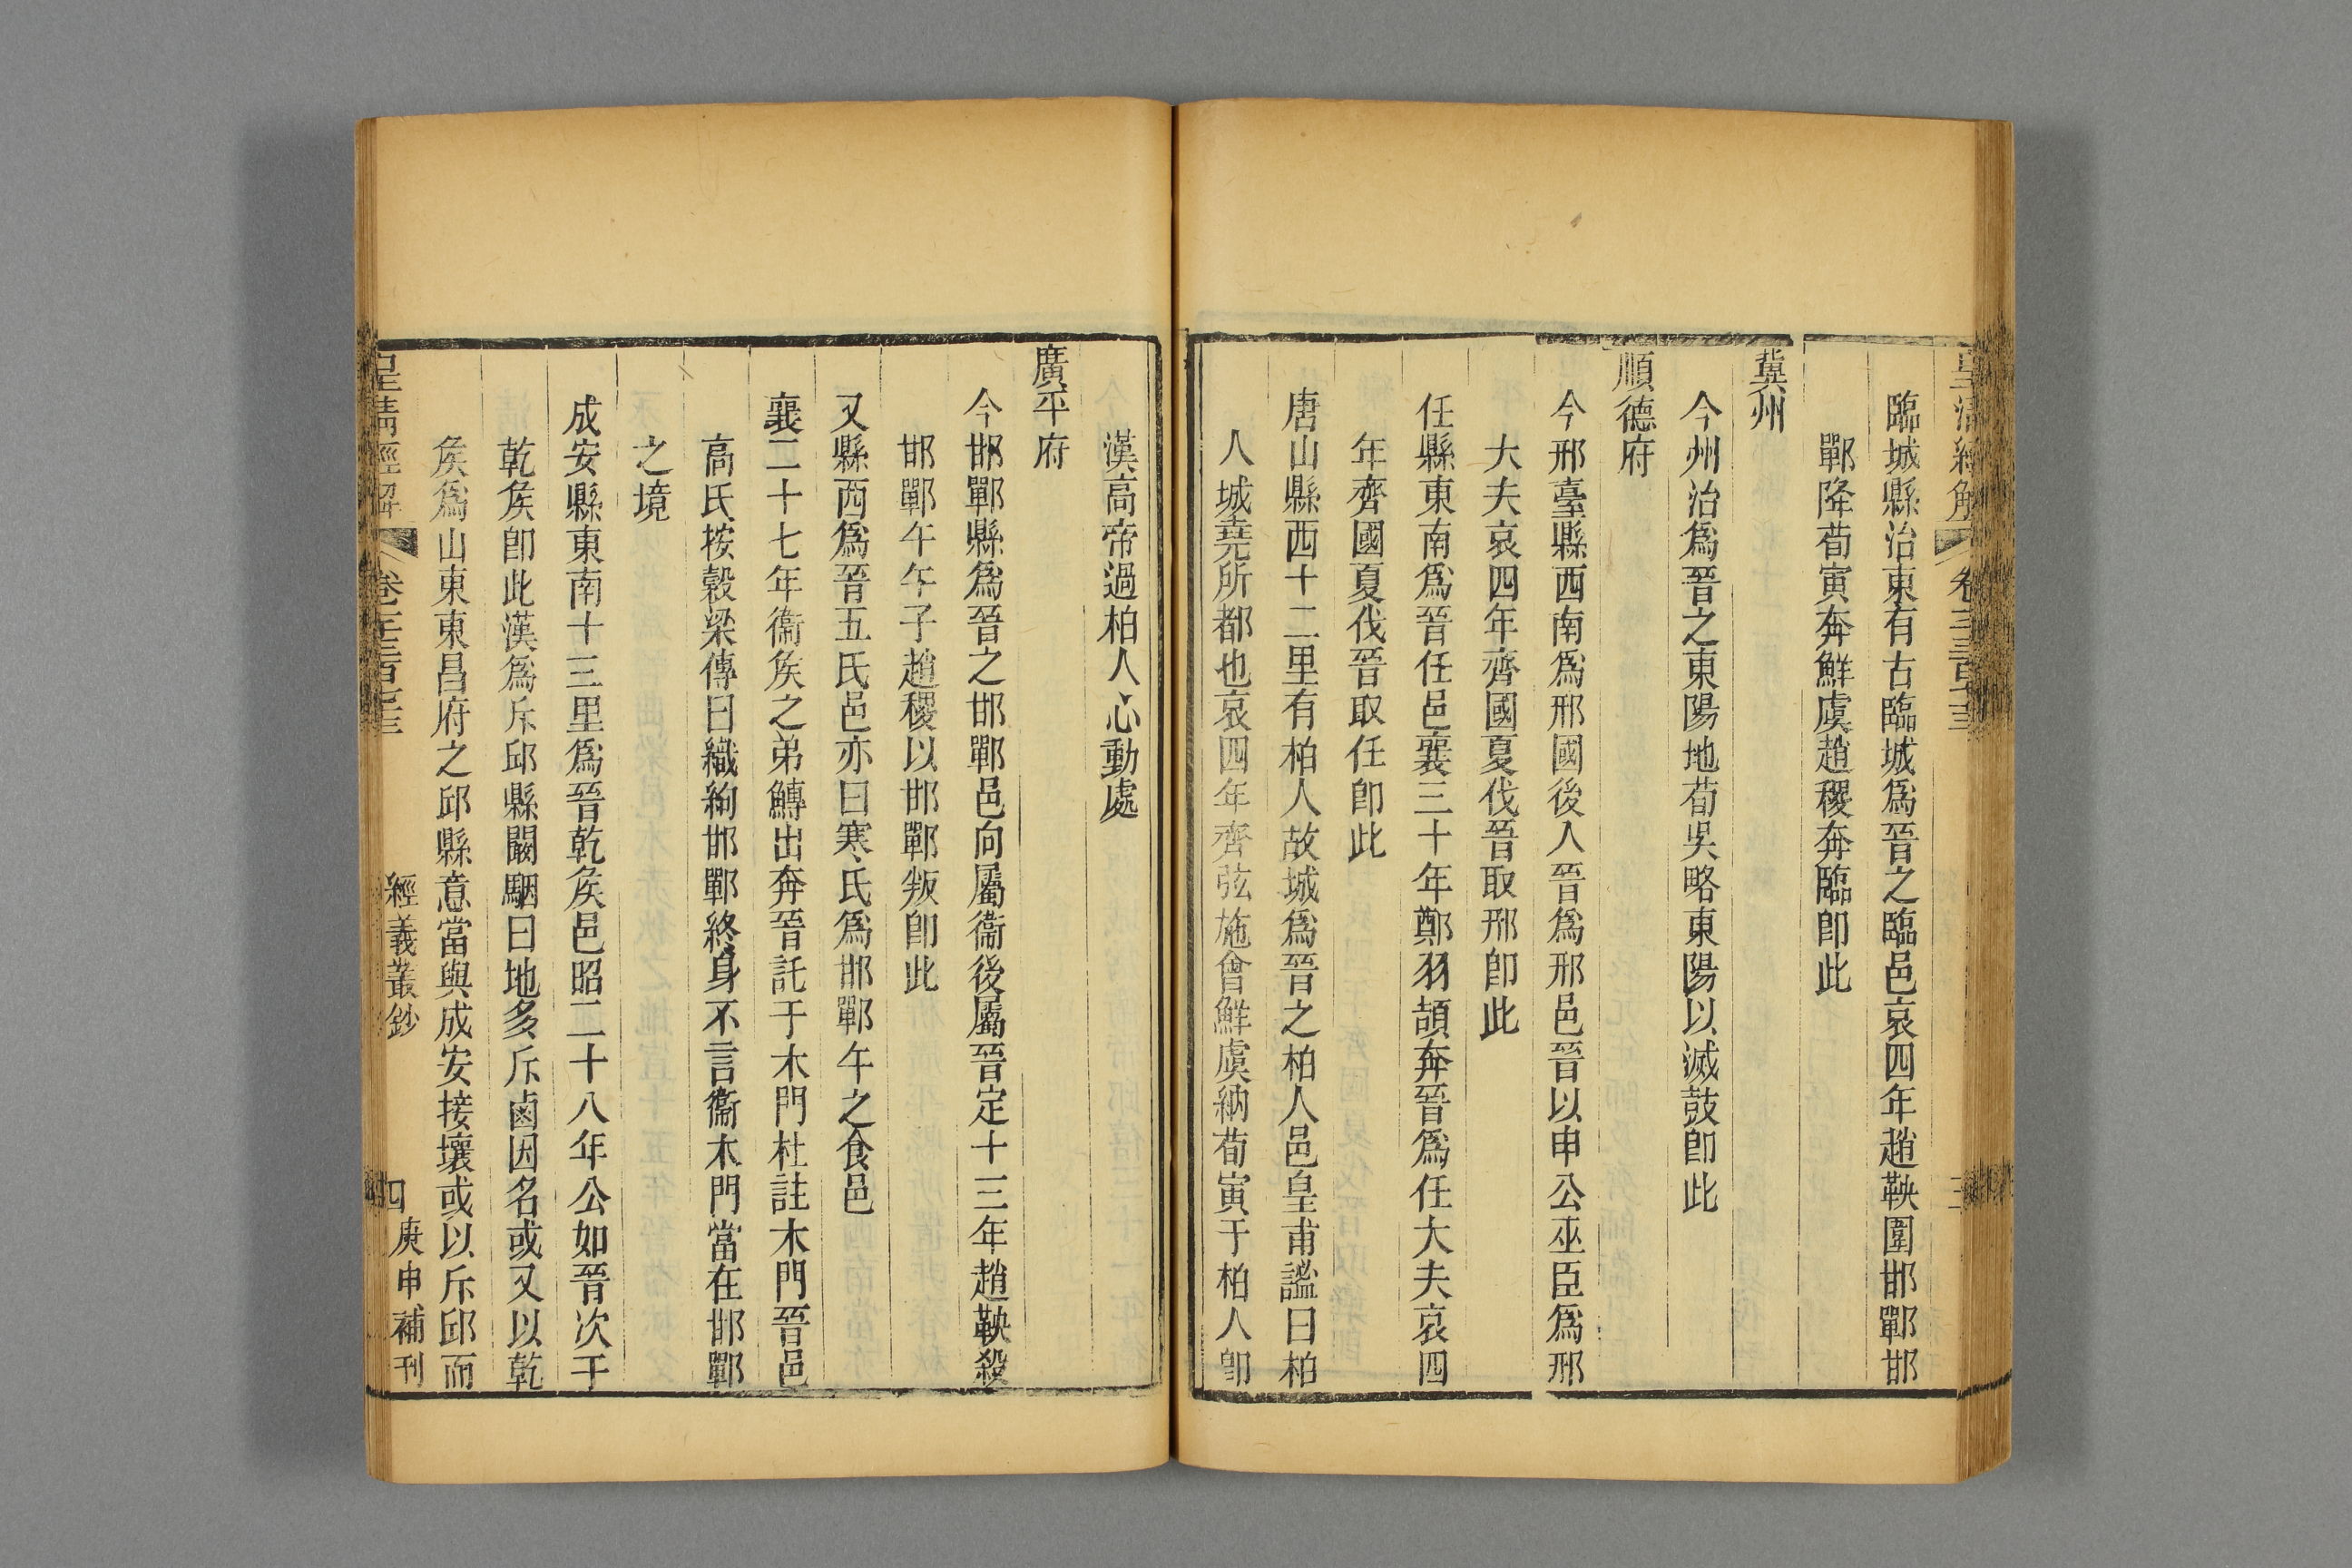 臨城縣治東有古臨城爲晉之臨邑哀四年趙鞅圍邯鄲邯
鄲降荀寅奔鮮虞趙稷奔臨卽此
冀州
今州治爲晉之東陽地荀吳略東陽以滅鼓卽此
順德府
今邢臺縣西南爲邢國後入晉爲邢邑晉以申公巫臣爲邢
大夫哀四年齊國夏伐晉取邢卽此
任縣東南爲晉任邑襄三十年鄭羽頡奔晉爲任大夫哀四
年齊國夏伐晉取任卽此
唐山縣西十二里有柏人故城爲晉之柏人邑皇甫謐曰柏
人城堯所都也哀四年齊弦施會鮮虞納荀寅于柏人卽
漢高帝過柏人心動處
廣平府
今邯鄲縣爲晉之邯鄲邑向屬衞後屬晉定十三年趙鞅殺
邯鄲午午子趙稷以邯鄲叛卽此
又縣西爲晉五氏邑亦曰寒氏爲邯鄲午之食邑
襄二十七年衞矦之弟鱄出奔晉託于木門杜註木門晉邑
高氏按穀梁傳曰織絇邯鄲終身不言衞木門當在邯鄲
之境
成安縣東南十三里爲晉乾矦邑昭二十八年公如晉次于
乾矦卽此漢爲斥邱縣闞駰曰地多斥鹵因名或又以乾
矦爲山東東昌府之邱縣意當與成安接壤或以斥邱而
皇清經解
經義叢鈔
四
庚申補刊